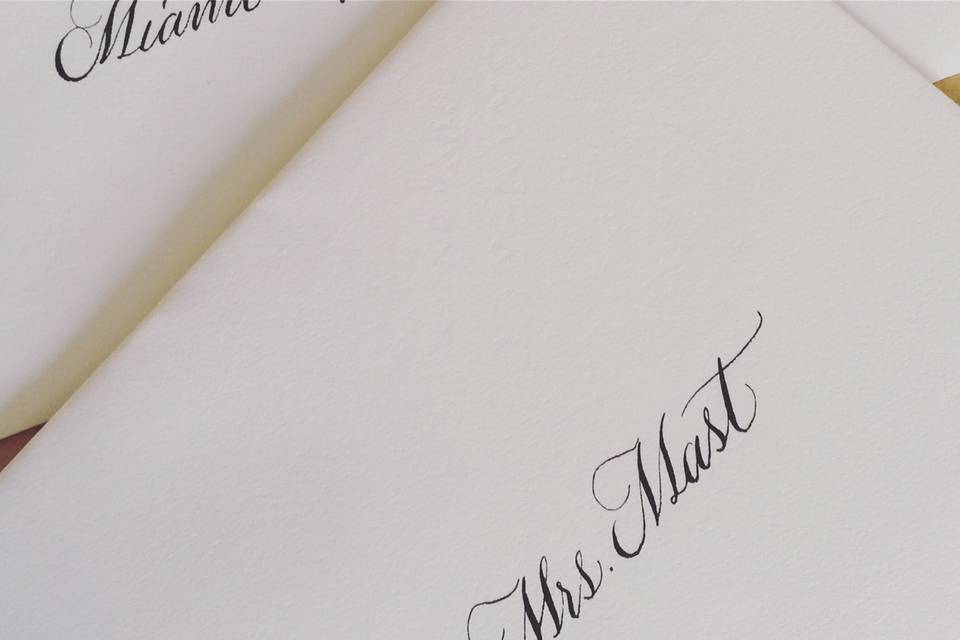 Miami
Mrs. Mast